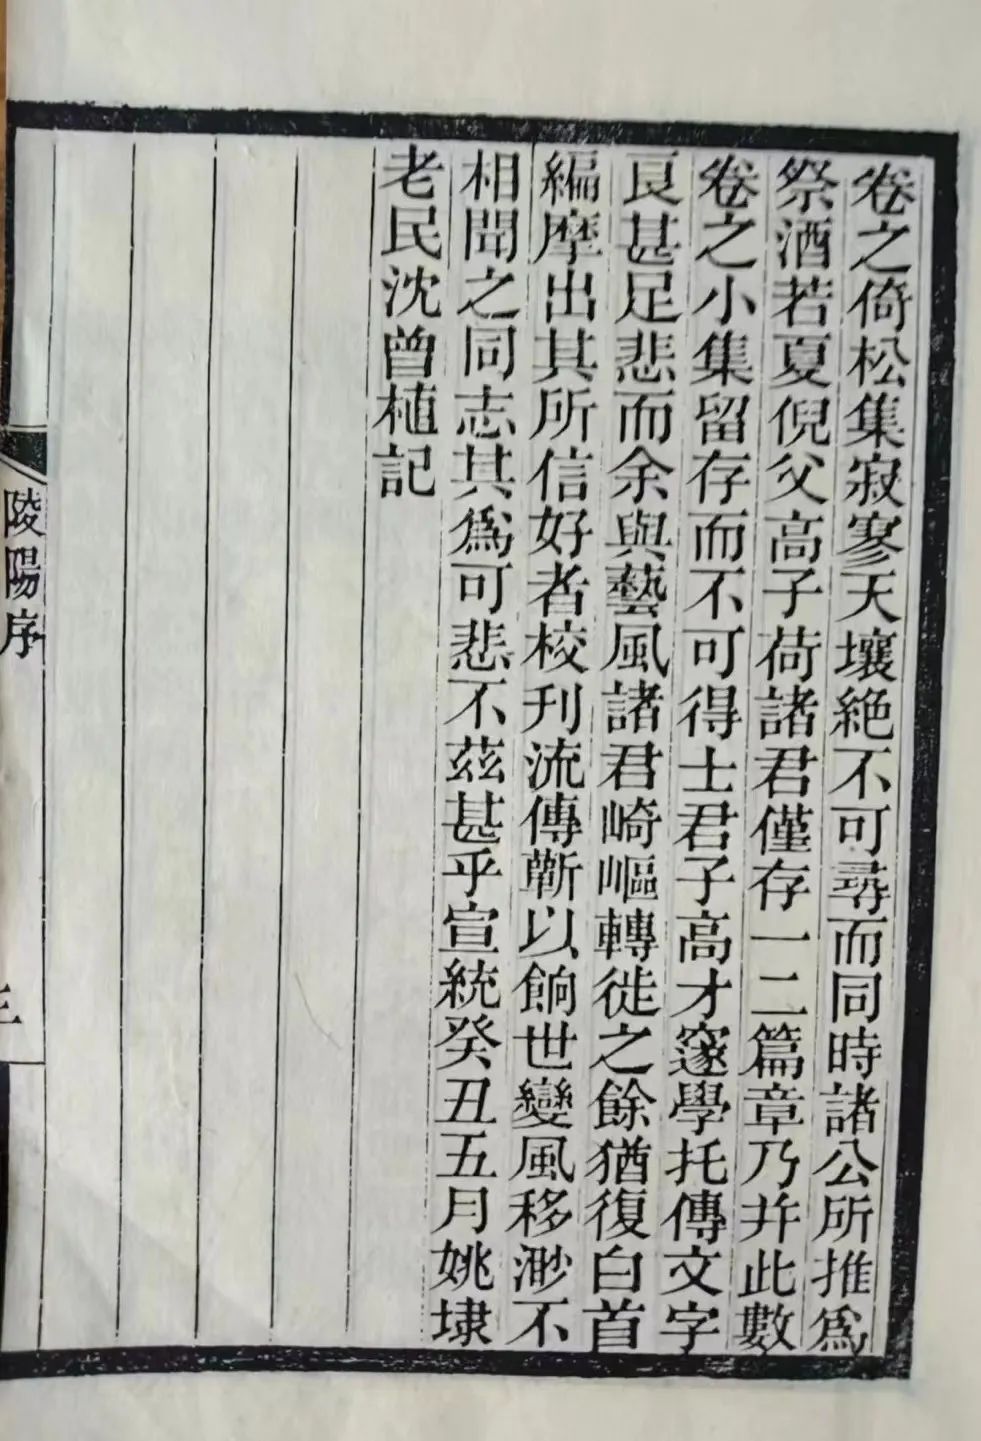 卷之倚松集寂寥天壤絶不可尋而同時諸公所推爲
祭酒若夏倪父高子荷諸君僅存一二篇章乃幷此數
卷之小集留存而不可得士君子高才邃學托傳文字
良甚足悲而余與藝風諸君崎嶇轉徙之餘猶復白首
編摩出其所信好者校刊流傳蘄以餉世變風移渺不
相聞之同志其爲可悲不茲甚乎宣統癸丑五月姚埭
老民沈曾植記
陵陽序